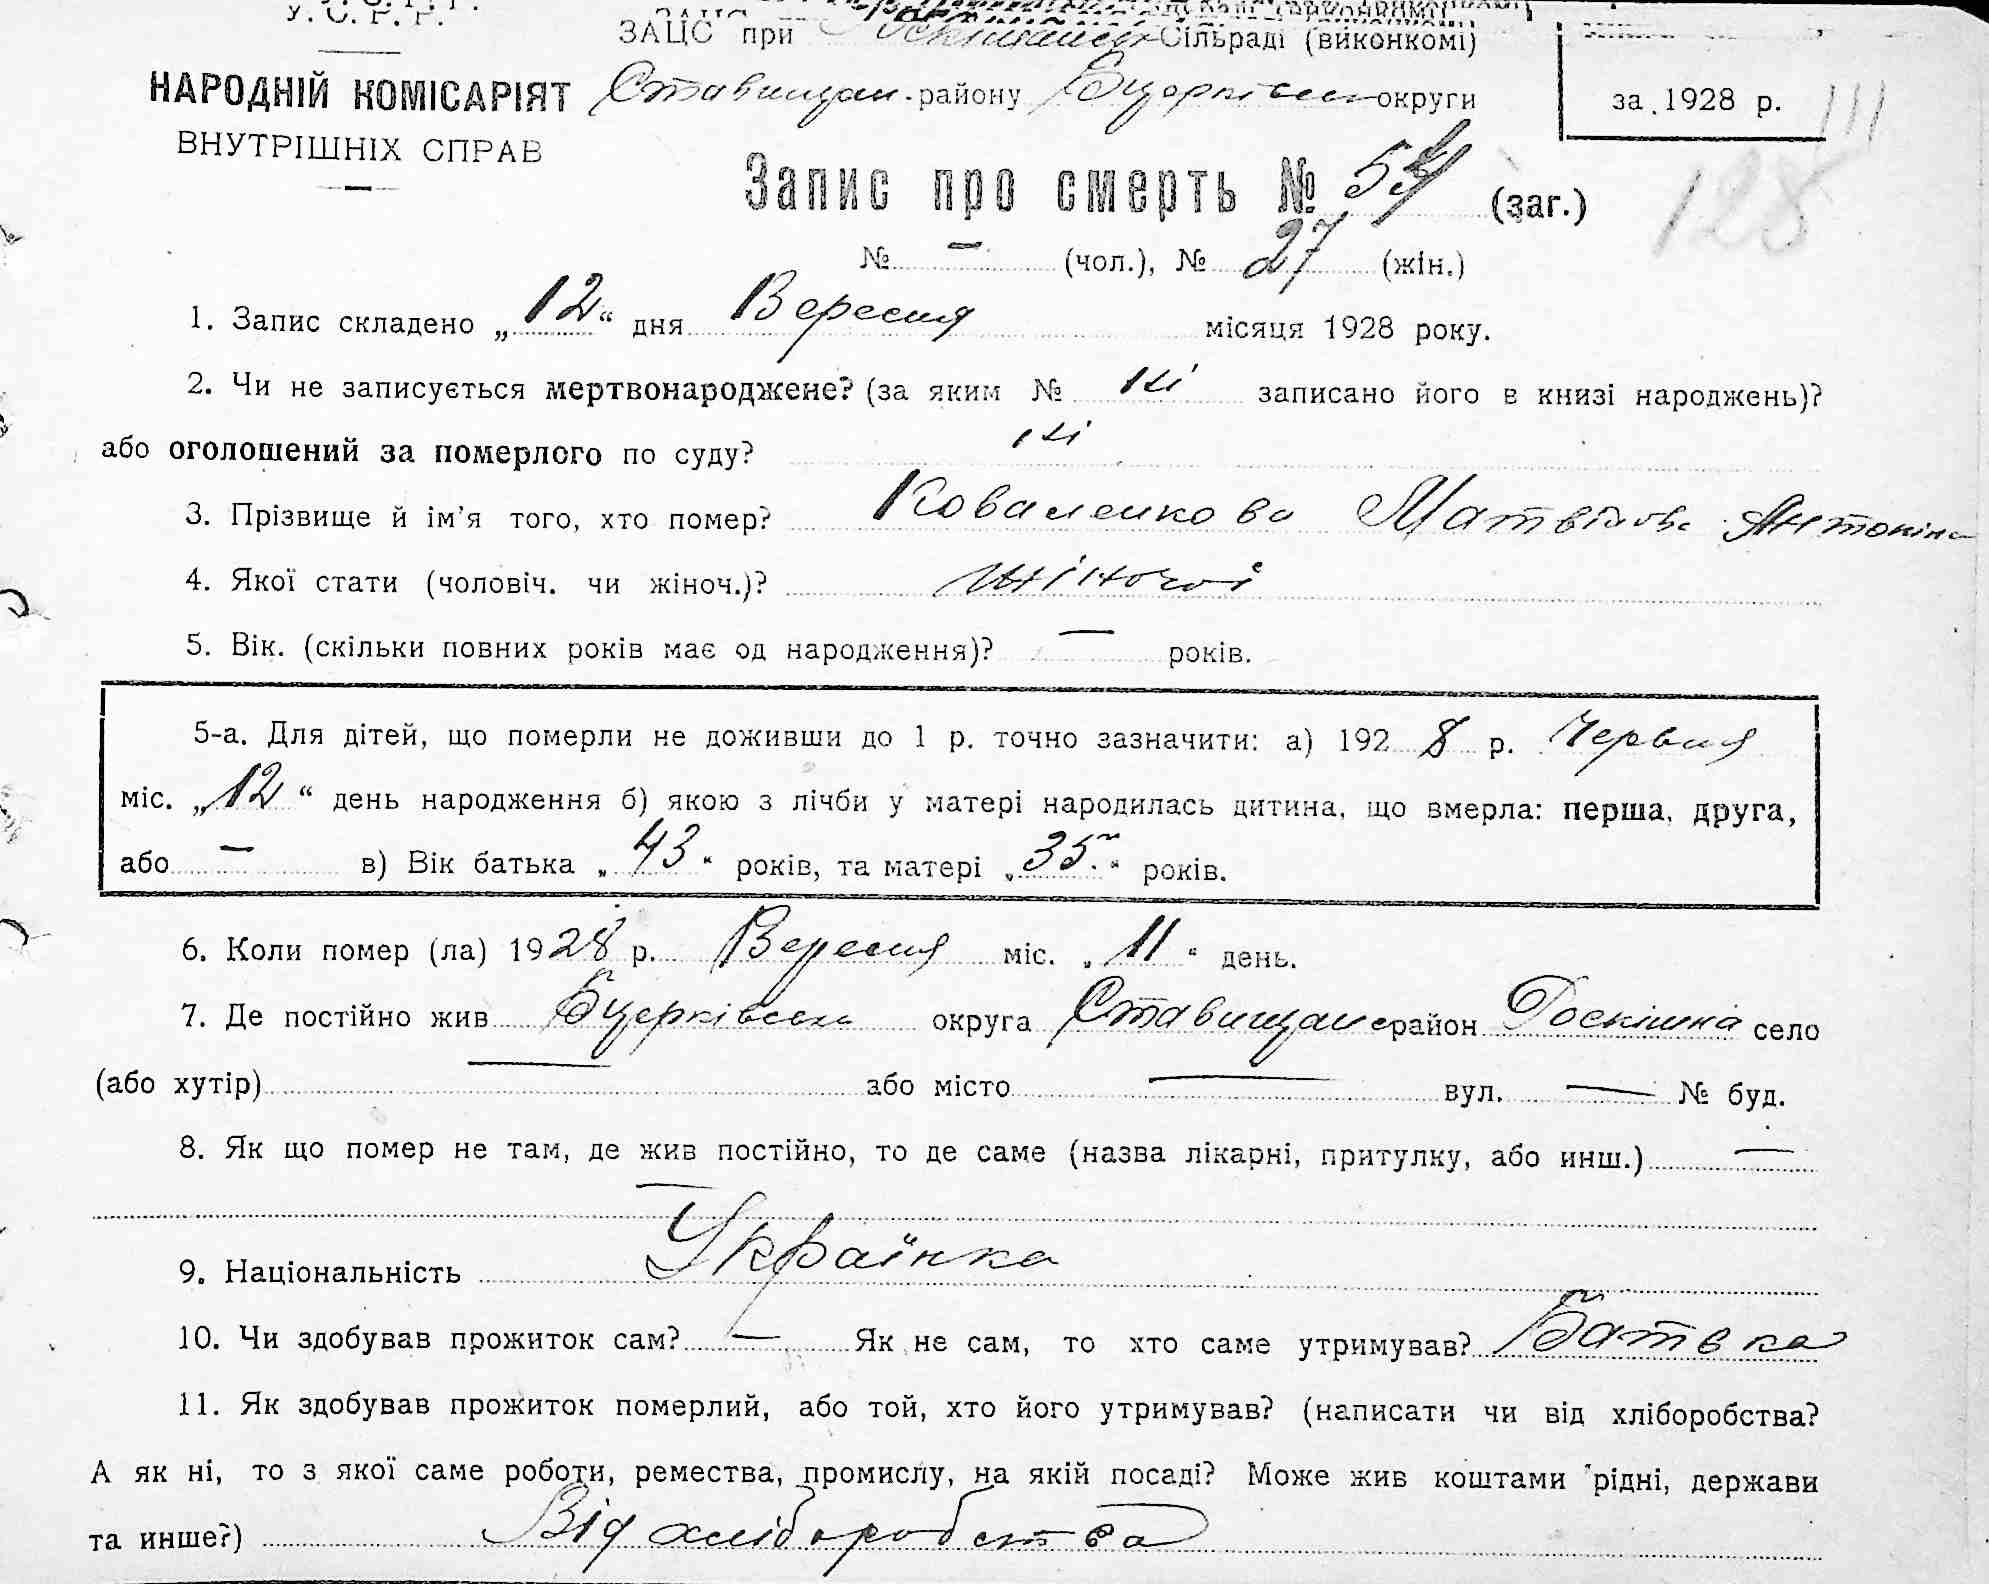 У. С. Р. Р.
ЗАЦС при Сільраді (виконкомі)
НАРОДНІЙ КОМІСАРІЯТ Ставищан. району Бцерківськ округи
за 1928 р. 111
ВНУТРІШНІХ СПРАВ
Запис про смерть № (заг.) 128
№ – (чол.), № 27 (жін.)
1. Запис складено „12“ дня Вересня місяця 1928 року.
2. Чи не записується мертвонароджене? (за яким № ні записано його в книзі народжень)?
або оголошений за померлого по суду? ні
3. Прізвище й ім’я того, хто помер? Коваленкова Матвіова Антоніна
4. Якої стати (чоловіч. чи жіноч.)? жіночої
5. Вік. (скільки повних років має од народження)? — років.
5-а. Для дітей, що померли не доживши до 1 р. точно зазначити: а) 1928 р. Червня
міс. „12“ день народження б) якою з лічби у матері народилась дитина, що вмерла: перша, друга,
або – в) Вік батька „43“ років, та матері „35“ років.
6. Коли помер (ла) 1928 р. Вересня міс. „11“ день.
7. Де постійно жив Бцерківська округа Ставищан район Роскішна село
(або хутір) — або місто — вул. — № буд.
8. Як що помер не там, де жив постійно, то де саме (назва лікарні, притулку, або инш.) —
9. Національність Українка
10. Чи здобував прожиток сам? — Як не сам, то хто саме утримував? Батька
11. Як здобував прожиток померлий, або той, хто його утримував? (написати чи від хліборобства?
А як ні, то з якої саме роботи, ремества, промислу, на якій посаді? Може жив коштами рідні, держави
та инше?) Від хліборобства